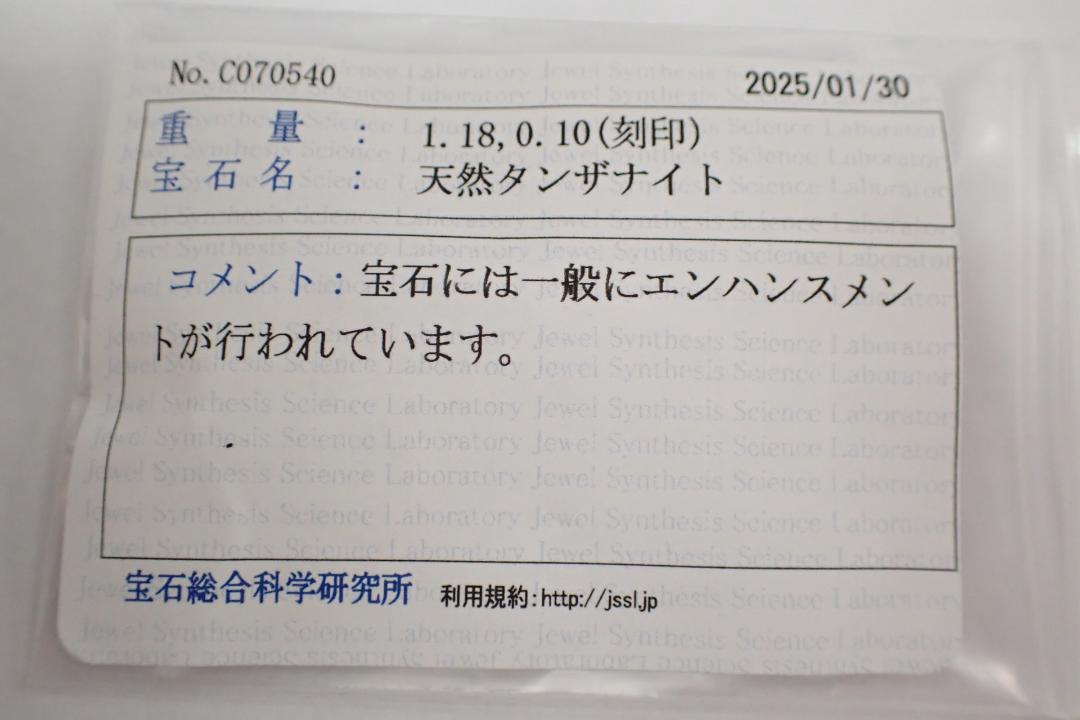 No. C070540
2025/01/30
重量 : 1.18, 0.10(刻印)
宝石名 : 天然タンザナイト
コメント : 宝石には一般にエンハンスメン
トが行われています。
宝石総合科学研究所 利用規約:http://jssl.jp
Jewel Synthesis Science Laboratory Jewel Synthesis Science Laboratory